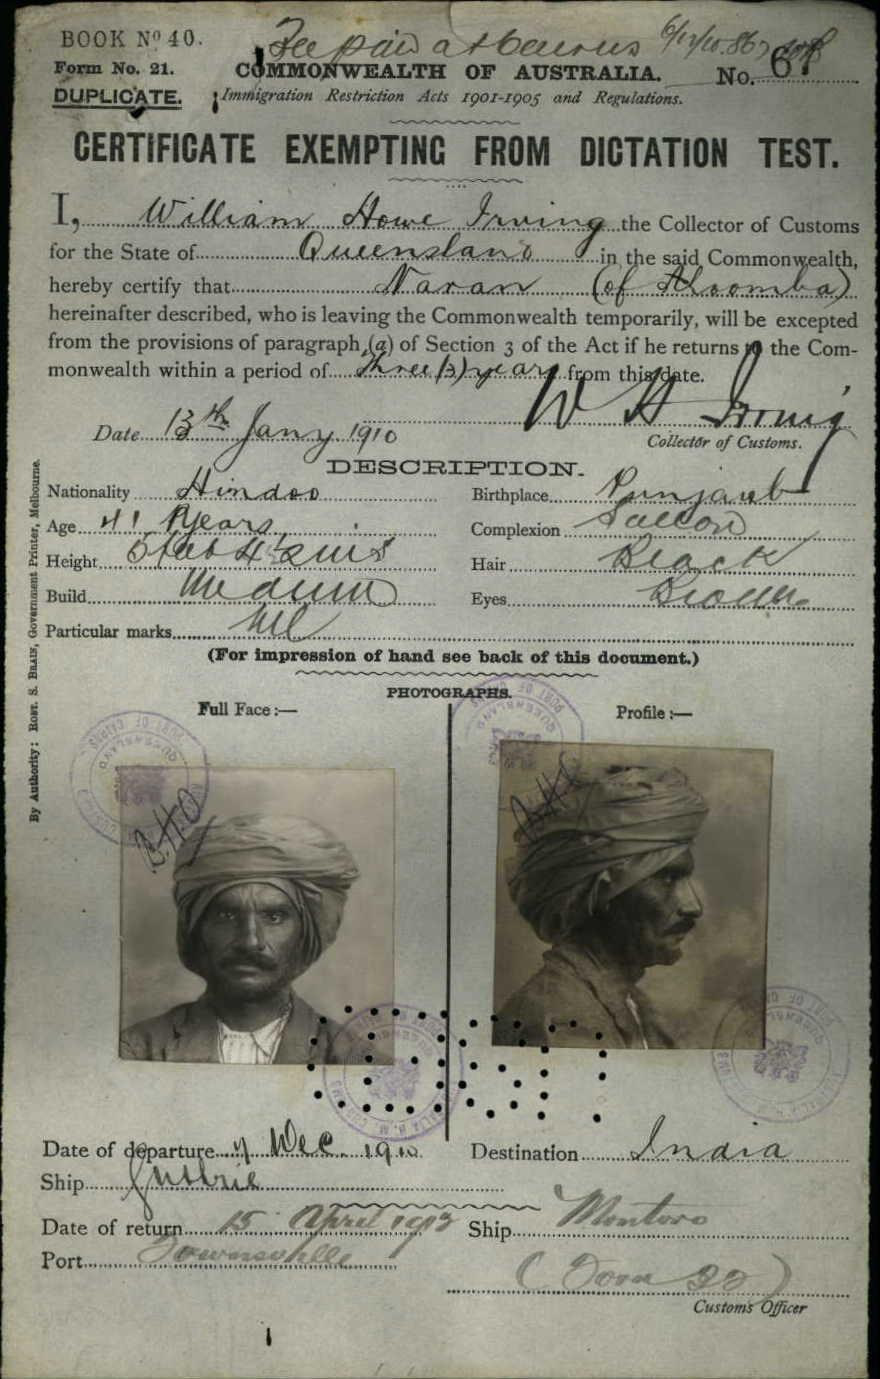 BOOK Nº 40.
Fee paid at Cairns 6/12/10
Form No. 21.
COMMONWEALTH OF AUSTRALIA.
No. 67
DUPLICATE.
Immigration Restriction Acts 1901-1905 and Regulations.
CERTIFICATE EXEMPTING FROM DICTATION TEST.
I, William Howe Irving the Collector of Customs
for the State of Queensland in the said Commonwealth,
hereby certify that Naran (of Aloomba)
hereinafter described, who is leaving the Commonwealth temporarily, will be excepted
from the provisions of paragraph (a) of Section 3 of the Act if he returns to the Com-
monwealth within a period of three (3) years from this date.
W H Irving
Date 13th Jany 1910
Collector of Customs.
DESCRIPTION.
Nationality Hindoo
Birthplace Punjaub
Age 41 years
Complexion
Height 5 feet 4½ ins
Hair Black
Build Medium
Eyes Brown
Particular marks Nil
(For impression of hand see back of this document.)
PHOTOGRAPHS.
Full Face :—
Profile :—
PORT OF CAIRNS
QUEENSLAND
Date of departure 7 Dec. 1910
Destination India
Ship Guthrie
Date of return 15 April 1913
Ship Montoro
Port Townsville
Customs Officer
By Authority: ROBT. S. BRAIN, Government Printer, Melbourne.